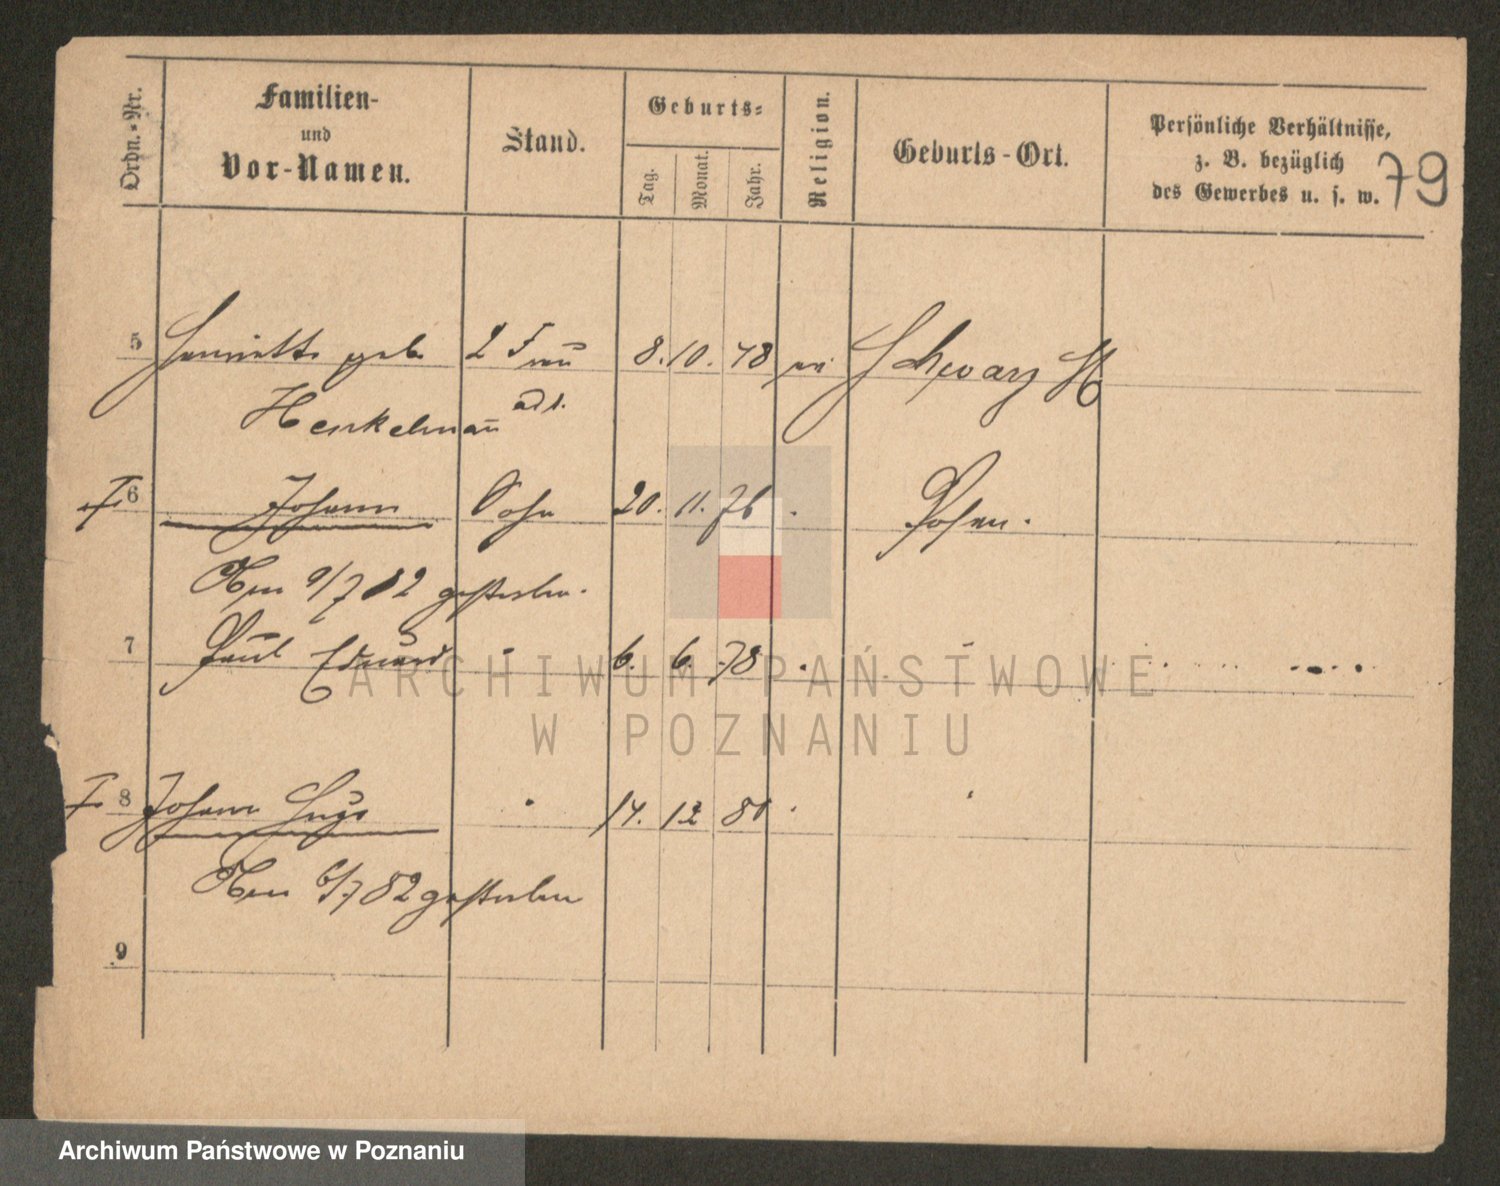 Ordn.-Nr.
Familien-
und
Vor-Namen.
Stand.
Geburts-
Tag.
Monat.
Jahr.
Religion.
Geburts-Ort.
Persönliche Verhältnisse,
z. B. bezüglich
des Gewerbes u. s. w.
79
5 Henriette geb. 2 Frau 8. 10. 48
Henkelmañ
6 Johann Sohn 20. 11. 76 Posen.
Am 9/7 82 gestorben.
7 Paul Eduard 6. 6. 78
8 Johann Hugo 14. 12 80
Am 6/7 82 gestorben
9
ARCHIWUM PAŃSTWOWE
W POZNANIU
Archiwum Państwowe w Poznaniu